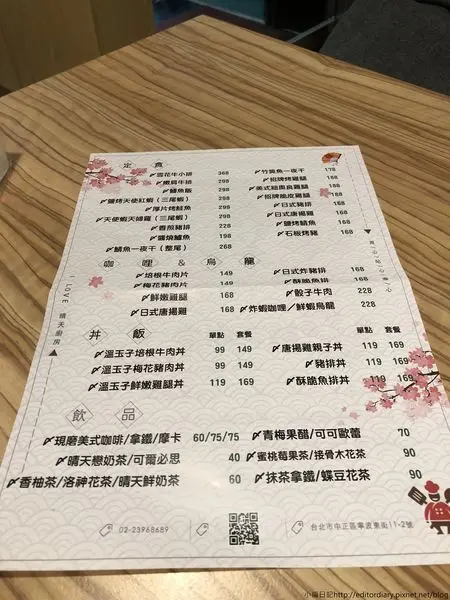 定 食
雪花牛小排 368
嫩肩牛排 298
鰻魚飯 298
鹽烤天使紅蝦（三尾蝦） 298
厚片烤鮭魚 298
天使蝦天婦羅（三尾蝦） 298
香煎豬排 228
醬燒鱸魚 198
鯖魚一夜干（整尾） 268
竹筴魚一夜干 178
招牌烤雞腿 188
美式紐奧良雞腿 188
招牌脆皮雞腿 188
日式豬排 168
日式唐揚雞 168
鹽烤鯖魚 168
石板烤豬 168
咖 哩 & 烏 龍
培根牛肉片 149
梅花豬肉片 149
鮮嫩雞腿 168
日式唐揚雞 168
日式炸豬排 168
酥脆魚排 168
骰子牛肉 228
炸蝦咖哩/鮮蝦烏龍 228
丼 飯 單點 套餐
溫玉子培根牛肉丼 99 149
溫玉子梅花豬肉丼 99 149
溫玉子鮮嫩雞腿丼 119 169
單點 套餐
唐揚雞親子丼 119 169
豬排丼 119 169
酥脆魚排丼 119 169
飲 品
現磨美式咖啡/拿鐵/摩卡 60/75/75
晴天戀奶茶/可爾必思 40
香柚茶/洛神花茶/晴天鮮奶茶 60
青梅果醋/可可歐蕾 70
蜜桃莓果茶/接骨木花茶 90
抹茶拿鐵/蝶豆花茶 90
I LOVE 晴天廚房
02-23968689
台北市中正區寧波東街11-2號
小陽日記http://editordiary.pixnet.net/blog